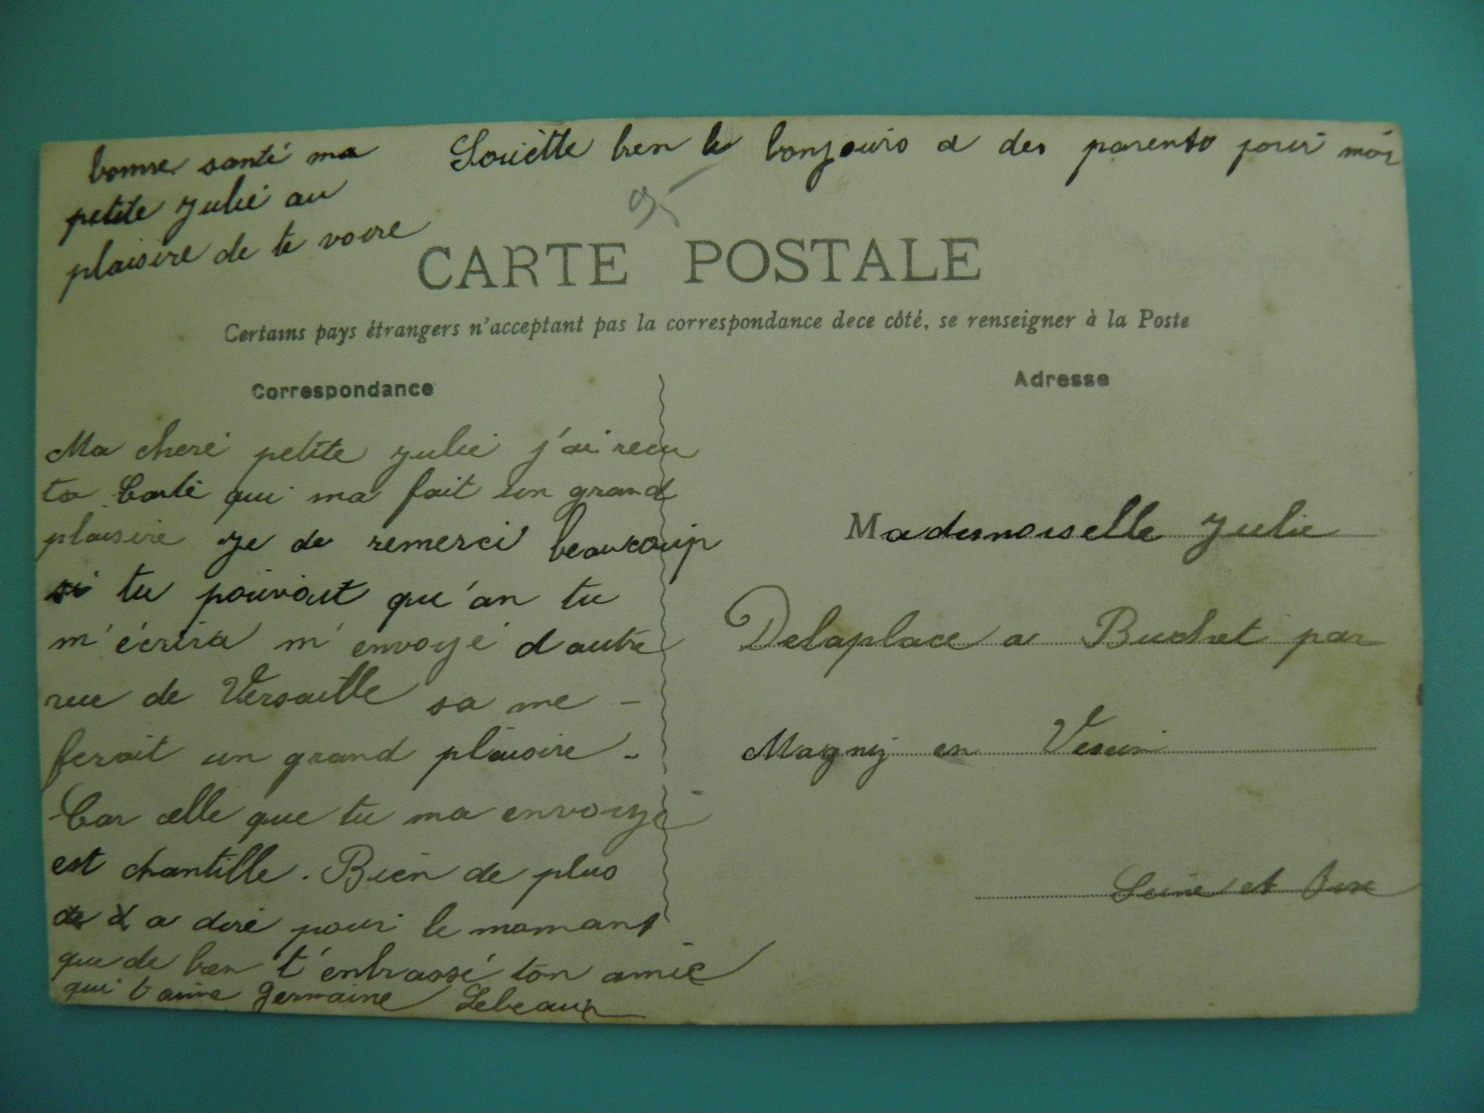 bonne santé ma
petite Julie au
plaisire de te voire
Souette bien le bonjours a des parents pour moi
95
CARTE POSTALE
Certains pays étrangers n'acceptant pas la correspondance dece côté, se renseigner à la Poste
Correspondance
Ma cheré petite Julie j'ai recu
ta Carte qui ma fait un grand
plaisire Je de remerci beaucoup
si tu pouvait qu'an tu
m'écrira m'envoyé d'autre
rue de Versaille sa me -
ferait un grand plaisire -
Car celle que tu ma envoyé
est chantille. Bien de plus
a dire pour le momant
que de bien t'enbrassé ton amie
qui t'aime Germaine Lebeaux
Adresse
Mademoiselle Julie
Delaplace a Buchet par
Magny en Vexin
Seine et Oise